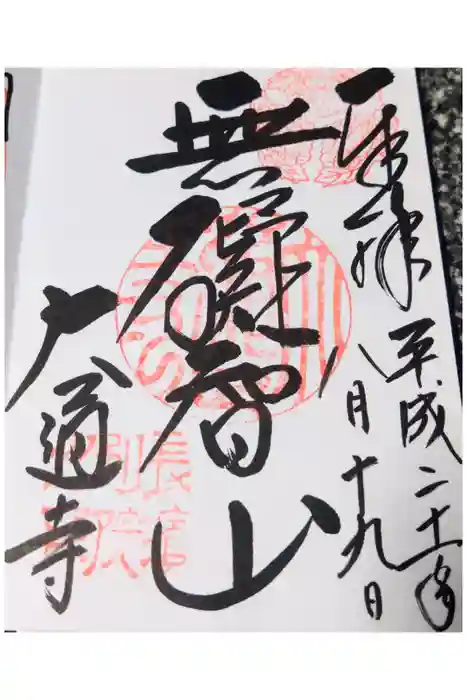 奉拝 平成二十一年
八月十九日
無礙智山
大通寺